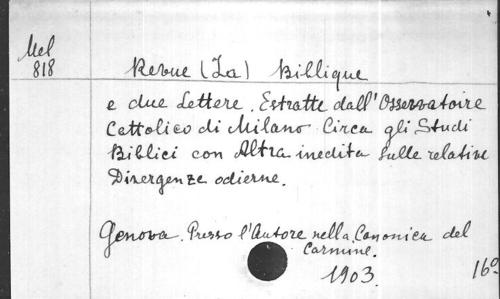 Mel
818
Revue (La) Billique
e due Lettere. Estratte dall'Osservatoire
Cattolico di Milano Circa gli Studi
Biblici con Altra inedita sulle relative
Divergenze odierne.
Genova. Presso l'Autore nella Canonica del
Carmine.
1903.
16º